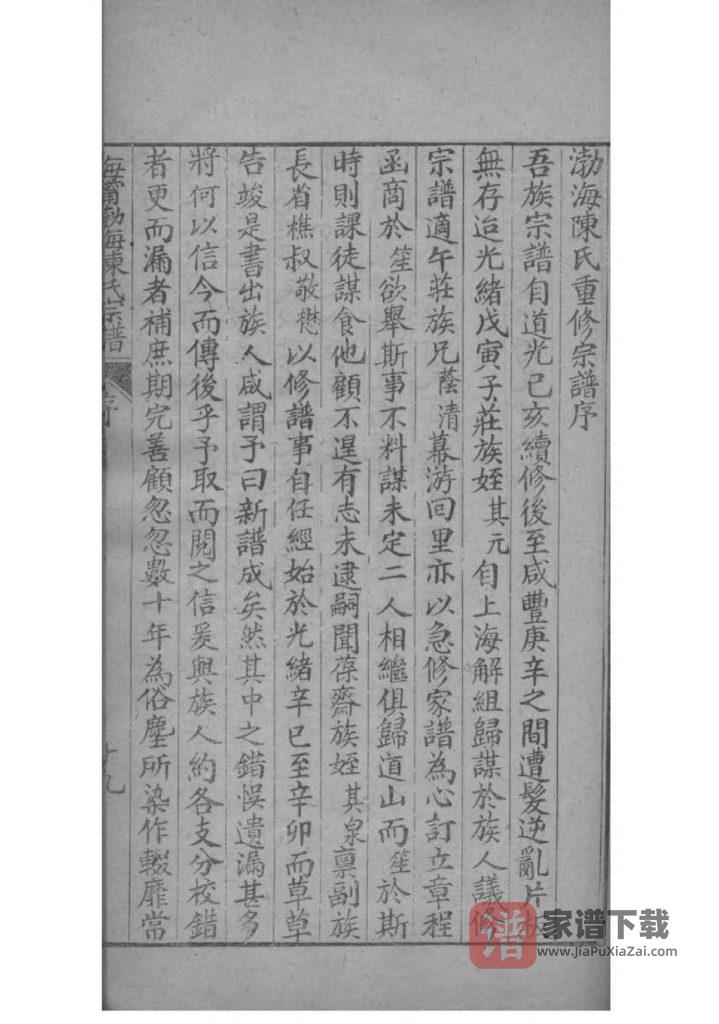 渤海陳氏重修宗譜序
吾族宗譜自道光己亥續修後至咸豐庚辛之間遭髮逆亂片板
無存迨光緒戊寅子莊族姪其元自上海解組歸謀於族人議修
宗譜適午莊族兄蔭清幕游回里亦以急修家譜為心訂立章程
函商於笙欲舉斯事不料謀未定二人相繼俱歸道山而笙於斯
時則課徒謀食他顧不遑有志未逮嗣聞葆齋族姪其泉禀副族
長省樵叔敬懋以修譜事自任經始於光緒辛巳至辛卯而草草
告竣是書出族人咸謂予曰新譜成矣然其中之錯悞遺漏甚多
將何以信今而傳後乎予取而閱之信爰與族人約各支分校錯
者更而漏者補庶期完善顧忽忽數十年為俗塵所染作輟靡常
海甯渤海陳氏宗譜 序 十九
譜 家谱下载
www.JiaPuXiaZai.com